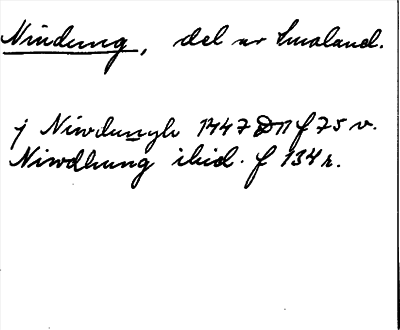 Niudung, del av Småland.
j Niwdungh 1447 Dn f 75 v.
Niwdhung ibid. f 134 r.